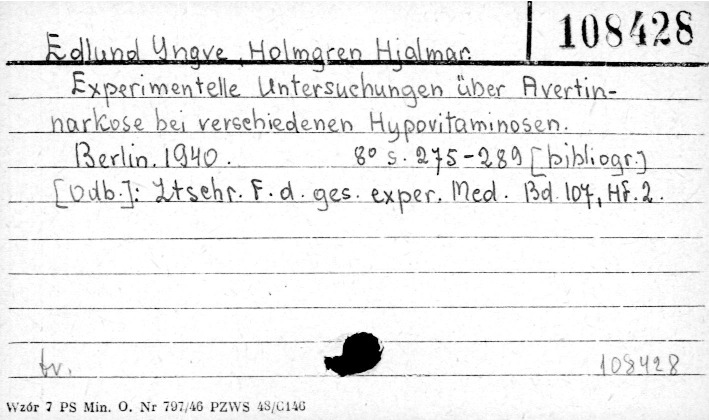 108428
Edlund Yngve, Holmgren Hjalmar.
Experimentelle Untersuchungen über Avertin-
narkose bei verschiedenen Hypovitaminosen.
Berlin. 1940. 8° s. 275-289 [bibliogr.]
[Odb.]: Ztschr. F. d. ges. exper. Med. Bd. 107, Hf. 2.
tv. 108428
Wzór 7 PS Min. O. Nr 797/46 PZWS 48/C146